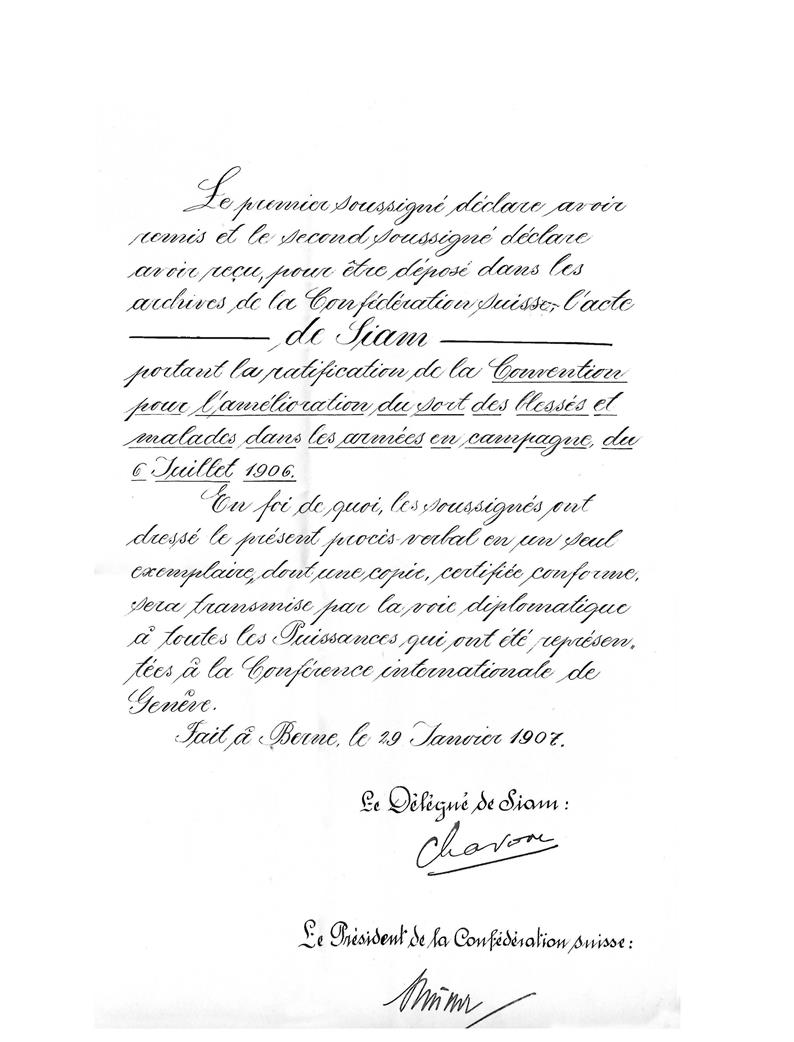 Le premier soussigné déclare avoir
remis et le second soussigné déclare
avoir reçu, pour être déposé dans les
archives de la Confédération suisse, l'acte
de Siam
portant la ratification de la Convention
pour l'amélioration du sort des blessés et
malades dans les armées en campagne, du
6 Juillet 1906.
En foi de quoi, les soussignés ont
dressé le présent procès-verbal en un seul
exemplaire, dont une copie, certifiée conforme,
sera transmise par la voie diplomatique
à toutes les Puissances qui ont été représen-
tées à la Conférence internationale de
Genève.
Fait à Berne, le 29 Janvier 1907.
Le Délégué de Siam:
Charoon
Le Président de la Confédération suisse: